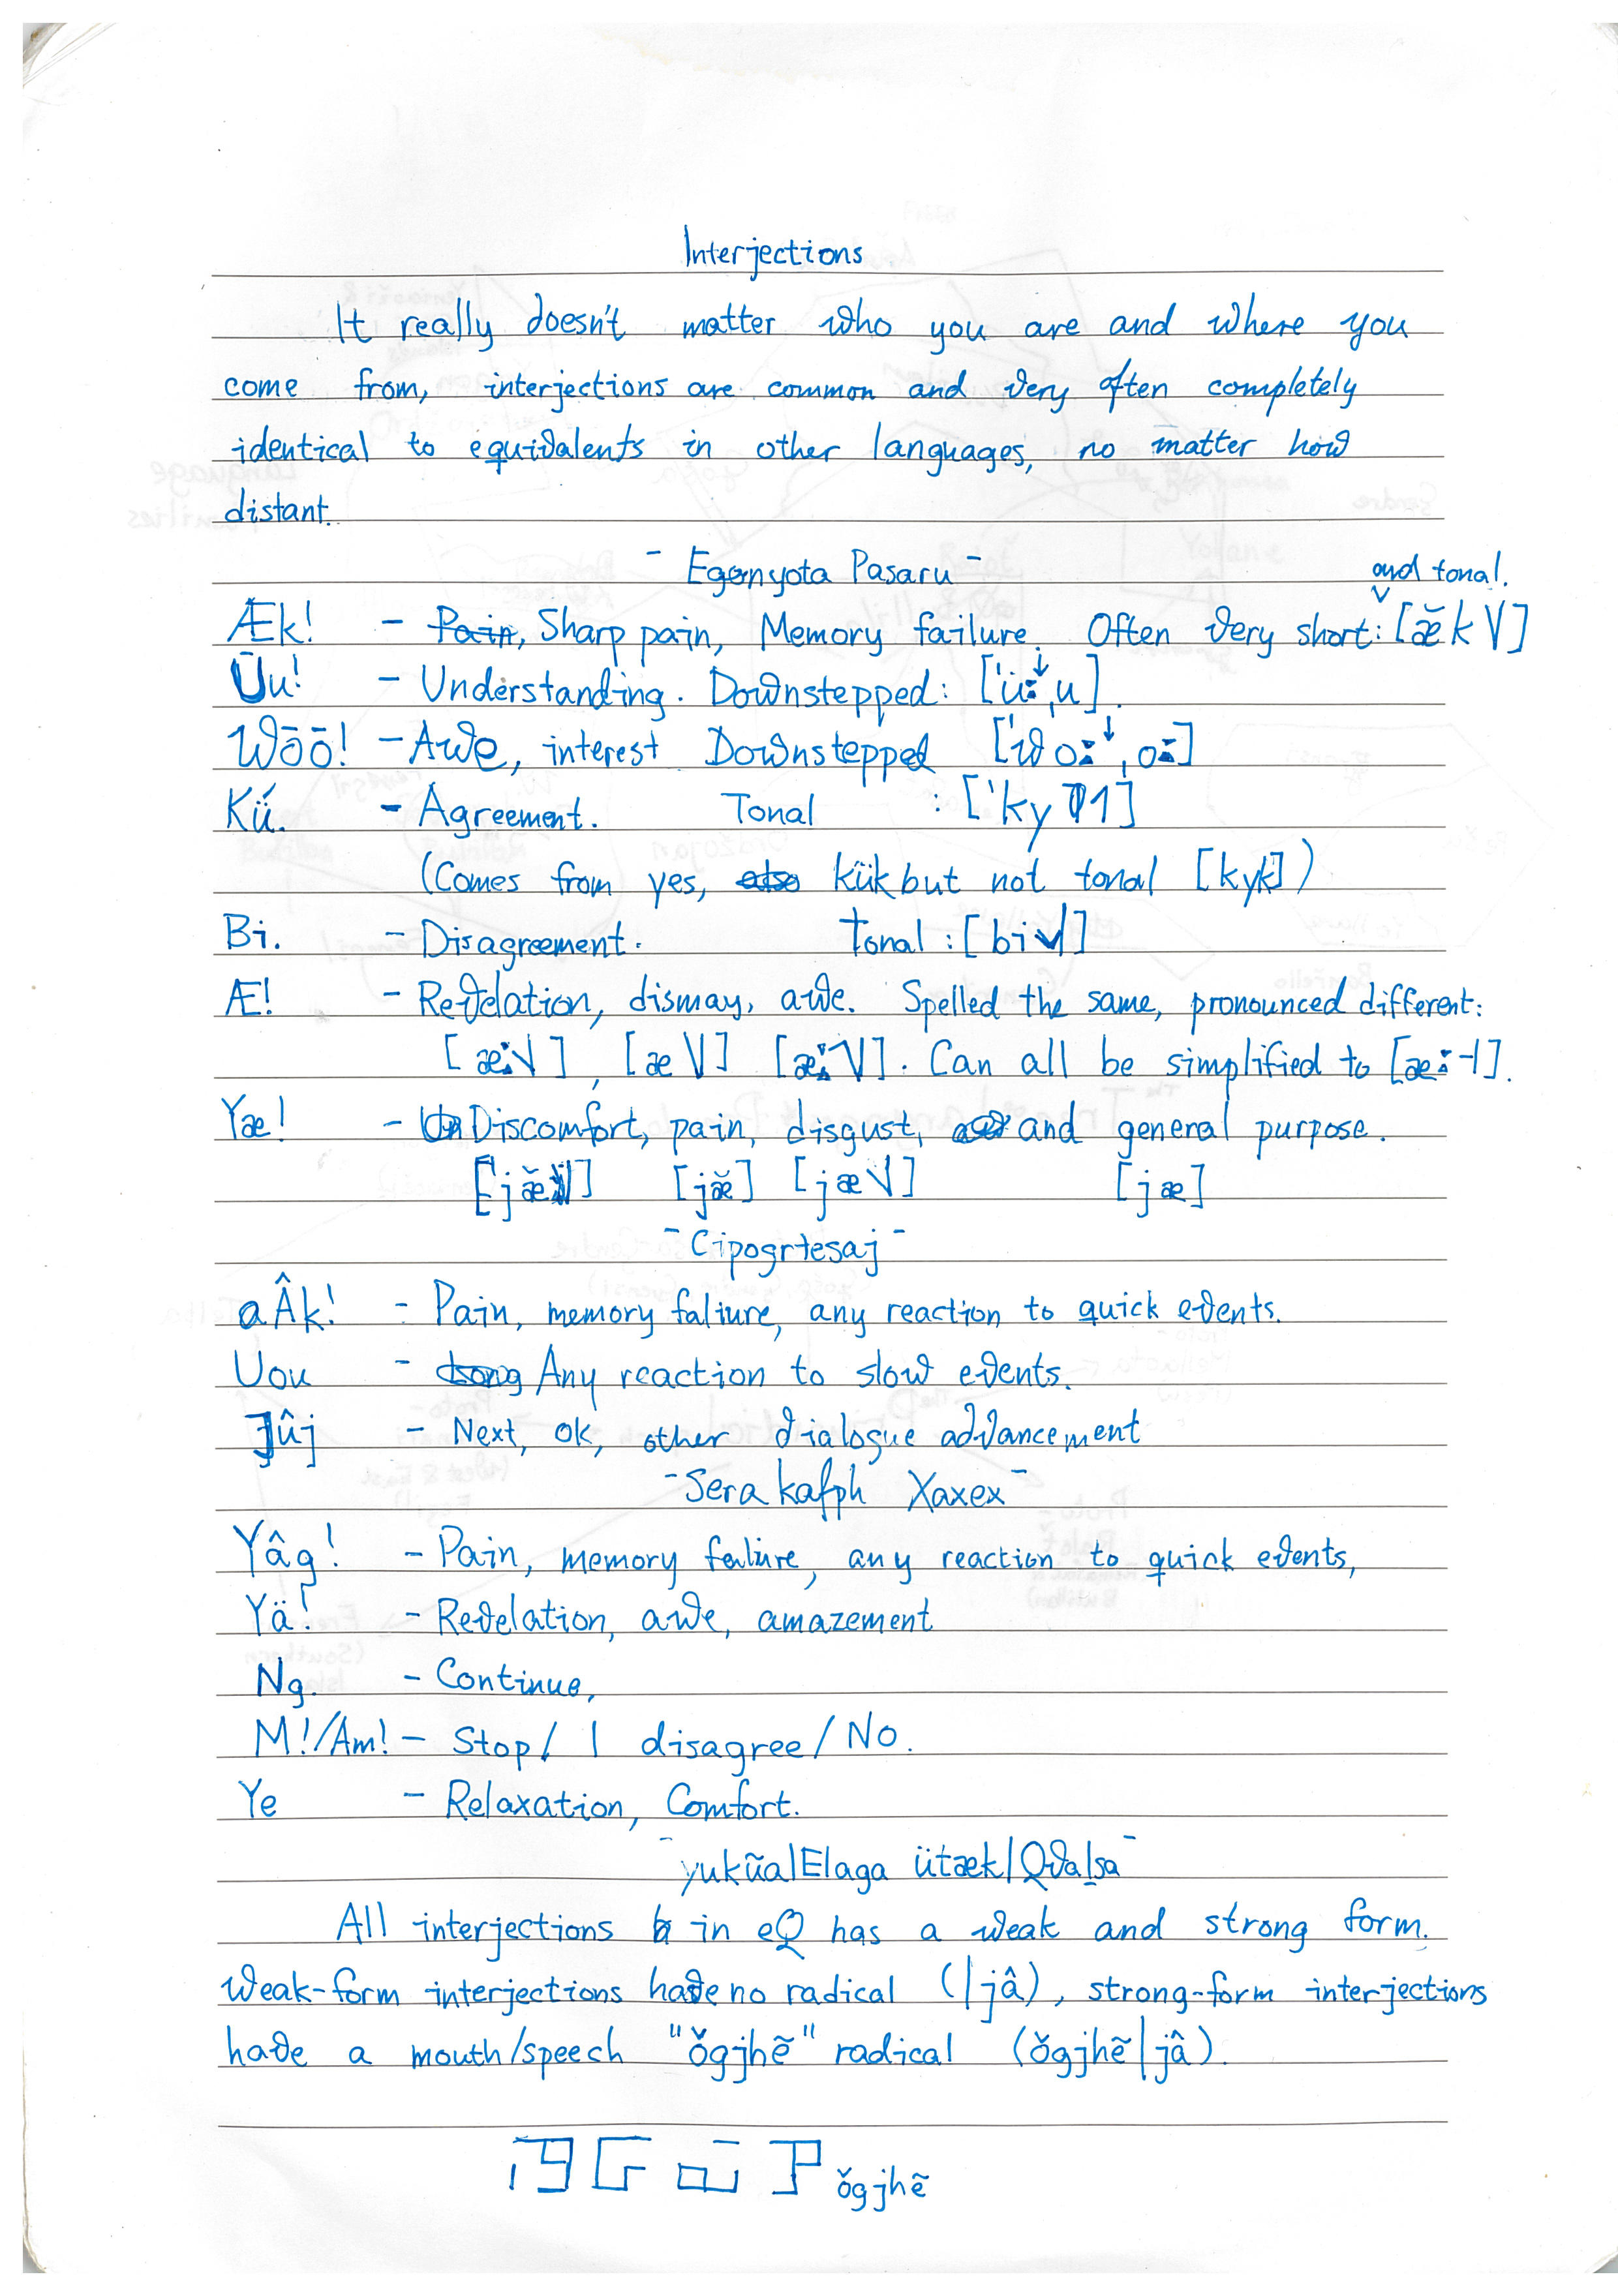 Interjections
It really doesn't matter who you are and where you
come from, interjections are common and very often completely
identical to equivalents in other languages, no matter how
distant.
- Egonyota Pasaru -
and tonal.
Æk! - Pain, Sharp pain, Memory failure. Often very short: [æ̆k V]
Ūu! - Understanding. Downstepped:
Wōō! - Awe, interest Downstepped
Kű. - Agreement. Tonal :
(Comes from yes, also kük but not tonal [kyk])
Bi. - Disagreement. Tonal :
Æ! - Revelation, dismay, awe. Spelled the same, pronounced different:
Can all be simplified to [æː˧].
Yæ! - Discomfort, pain, disgust, and general purpose.
[jæ̆] [jæ]
- Cipogrtesaj -
aÂk! - Pain, memory faliure, any reaction to quick events.
Uou - Long Any reaction to slow events.
Jûj - Next, ok, other dialogue advancement
- Sera kafph Xaxex -
Yâg! - Pain, memory faliure, any reaction to quick events,
Yä! - Revelation, awe, amazement
Ng. - Continue,
M!/Am! - Stop/ I disagree/ No.
Ye - Relaxation, Comfort.
- yukũa|Elaga ütæk|Qvaḻsa -
All interjections in eQ has a weak and strong form.
Weak-form interjections have no radical (|jâ), strong-form interjections
have a mouth/speech "ǒgjhẽ" radical (ǒgjhẽ|jâ).
ǒgjhẽ